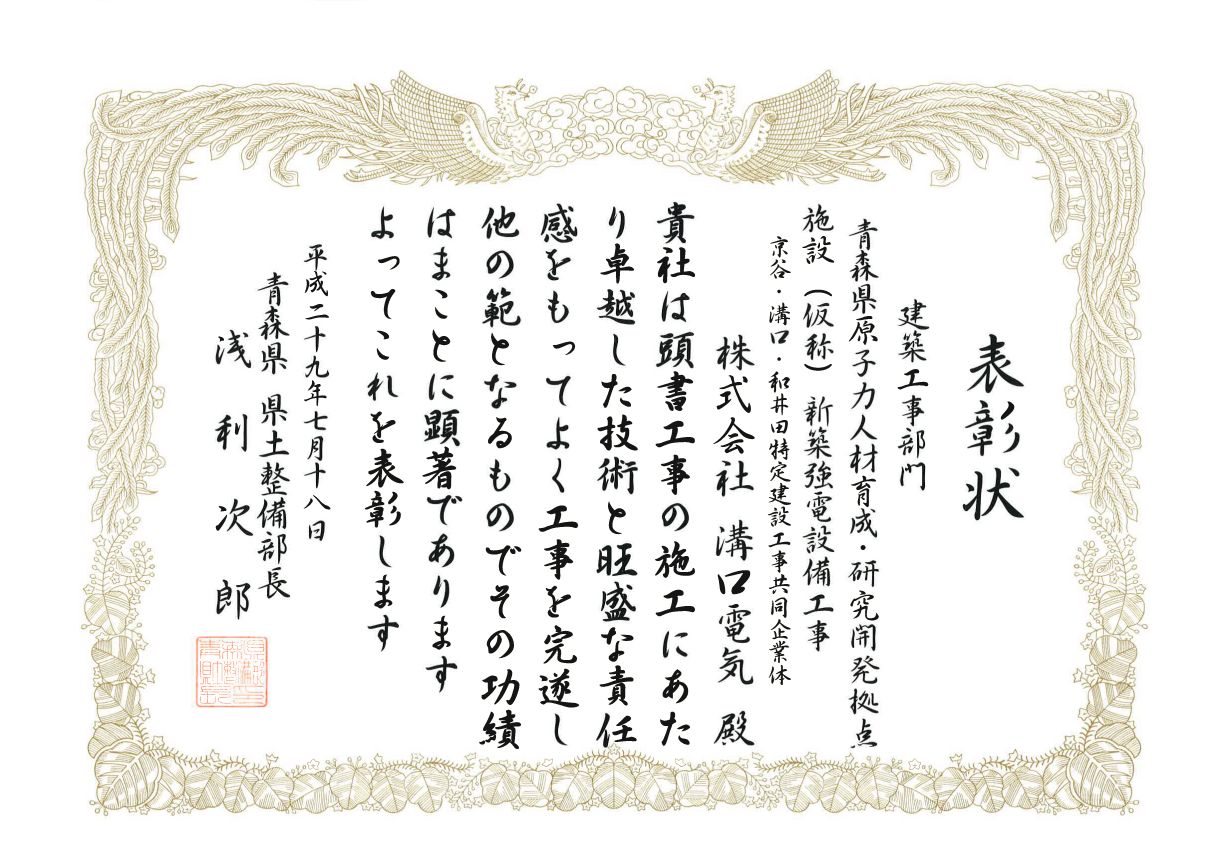 表彰状
建築工事部門
青森県原子力人材育成・研究開発拠点
施設（仮称）新築強電設備工事
京谷・溝口・和井田特定建設工事共同企業体
株式会社 溝口電気 殿
貴社は頭書工事の施工にあた
り卓越した技術と旺盛な責任
感をもってよく工事を完遂し
他の範となるものでその功績
はまことに顕著であります
よってこれを表彰します
平成二十九年七月十八日
青森県 県土整備部長
浅利次郎